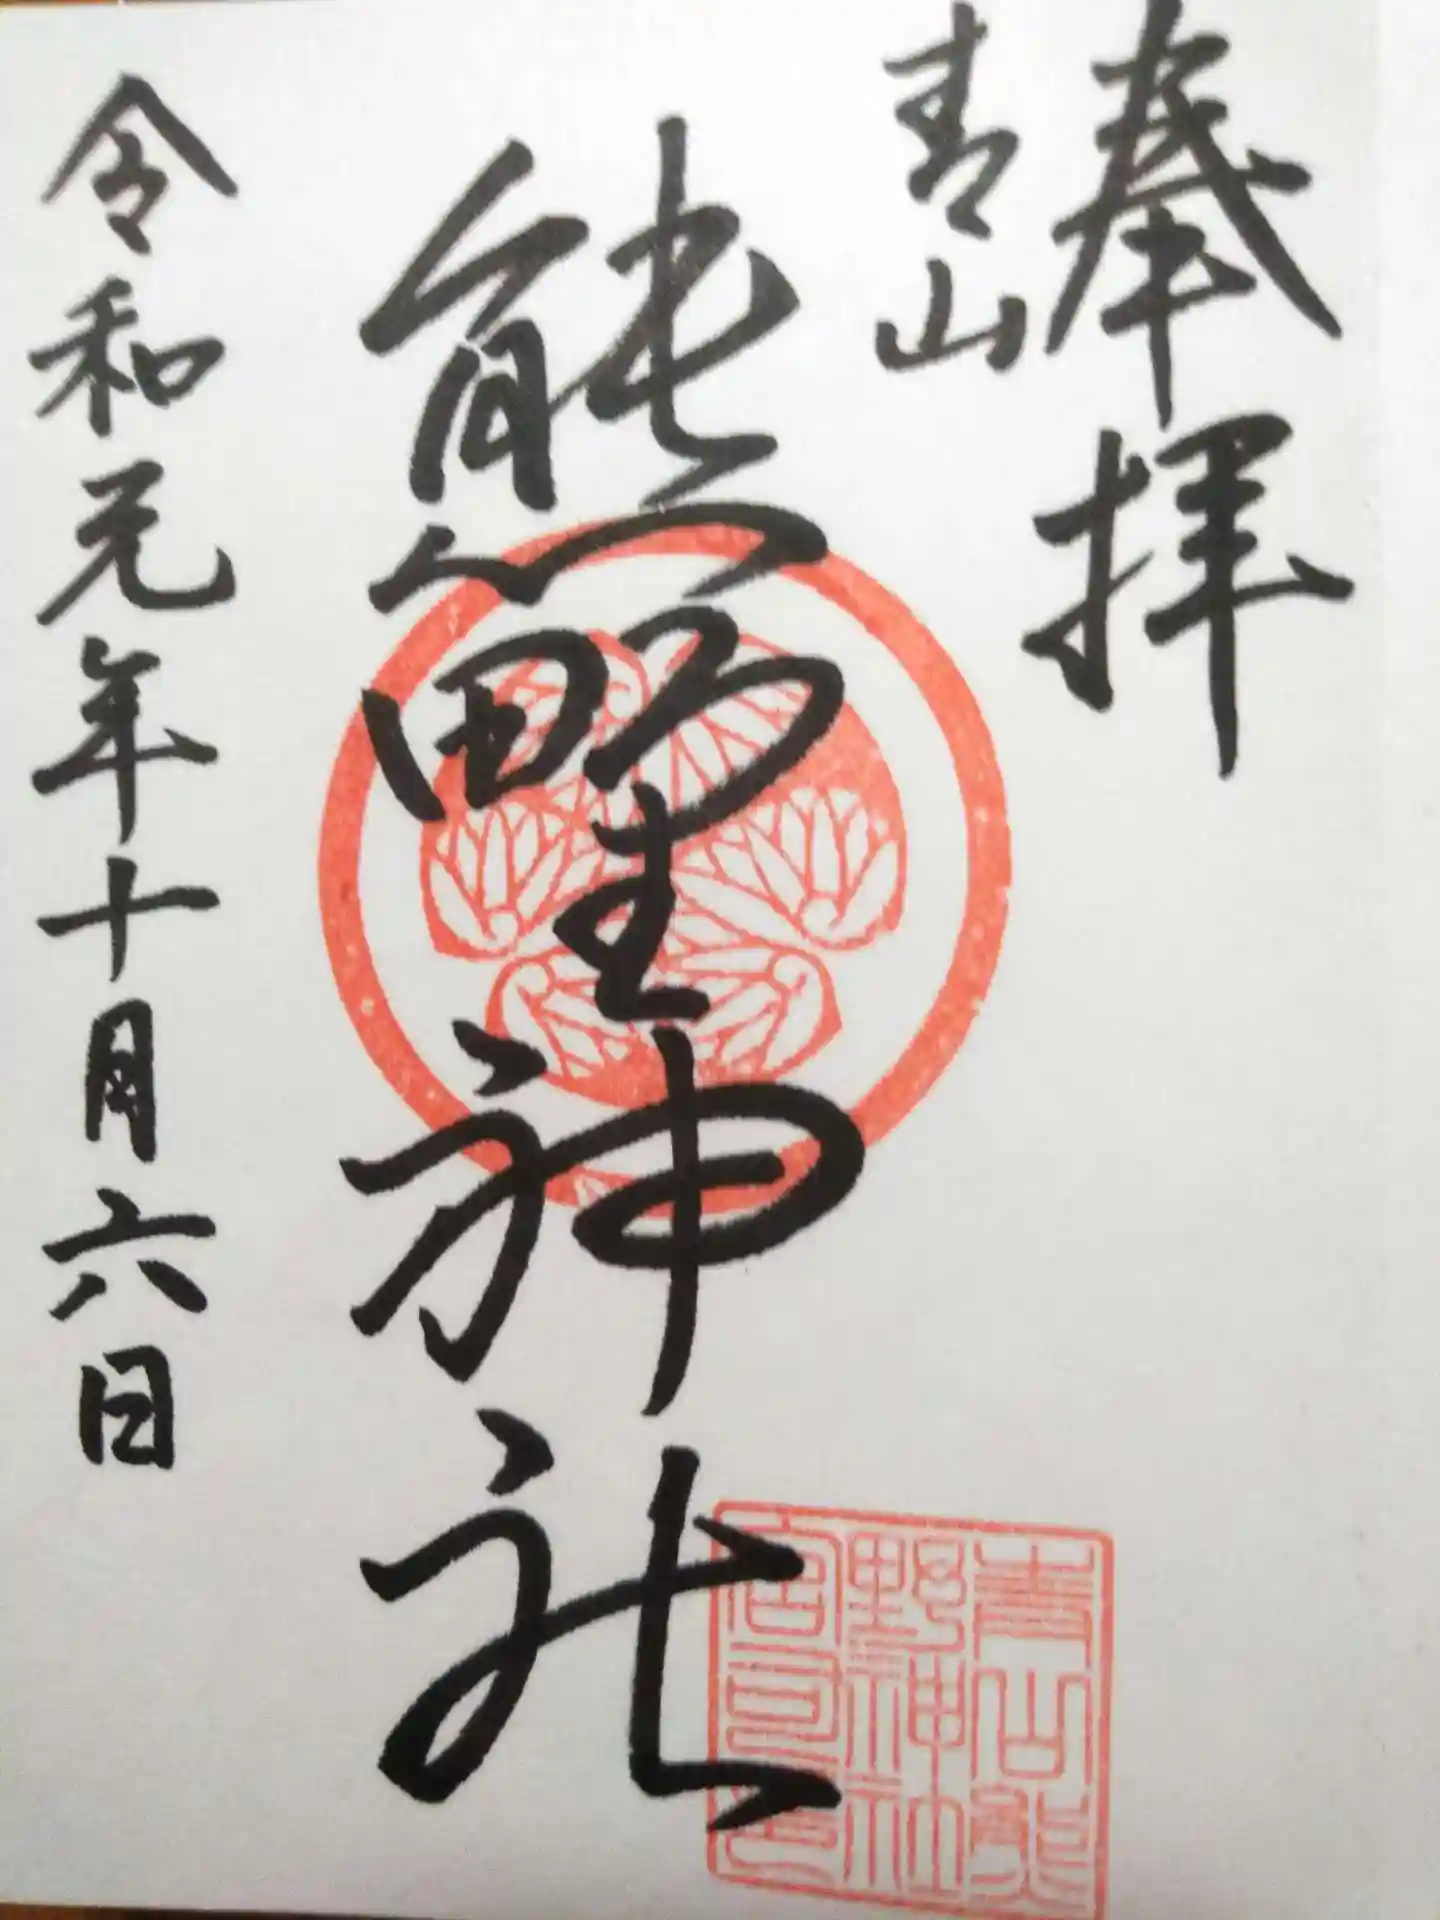 奉拝
青山
熊野神社
令和元年十月六日
青山熊
野神社
宮司之印